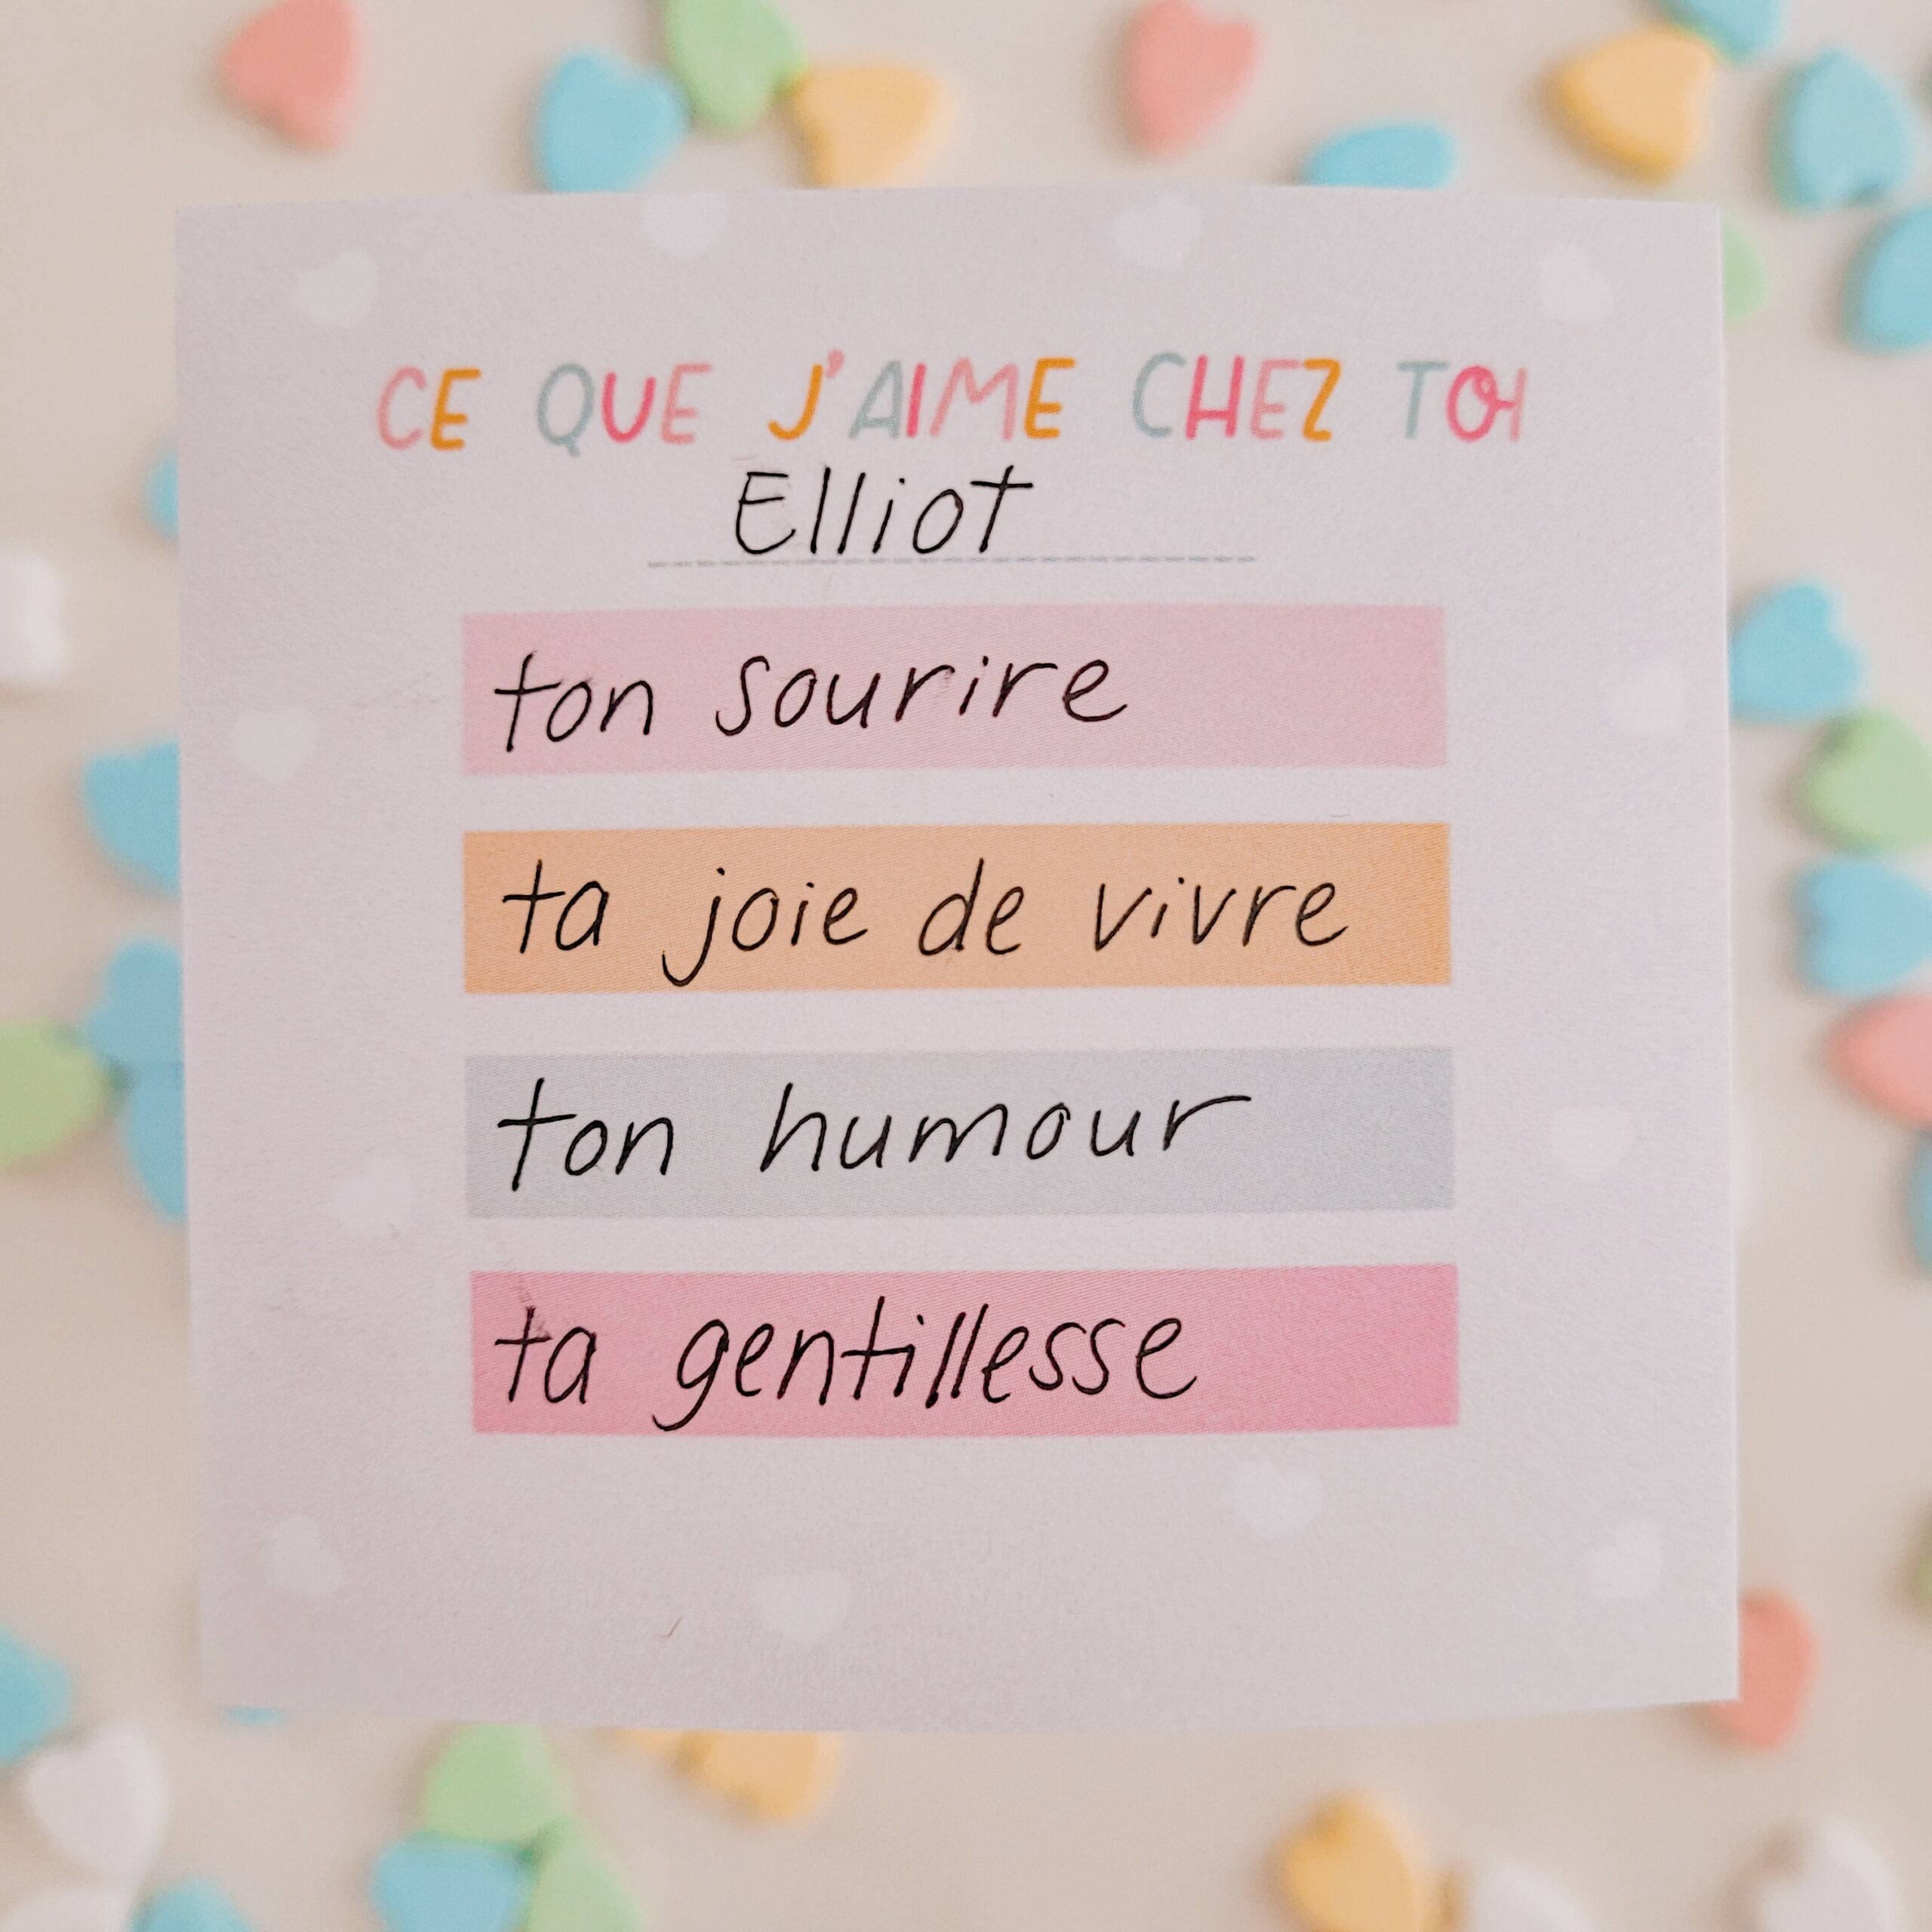 CE QUE J'AIME CHEZ TOI
Elliot
ton sourire
ta joie de vivre
ton humour
ta gentillesse